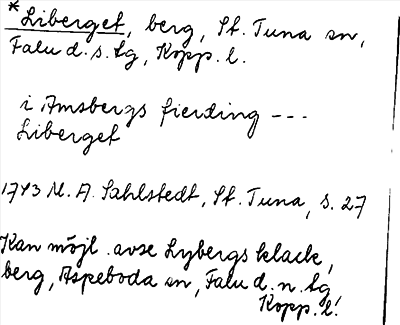 *Liberget, berg, St. Tuna sn,
Falu d. s. tg, Kopp. l.
i Amsbergs fierding ---
Liberget
1743 M. A. Sahlstedt, St. Tuna, s. 27
Kan möjl. avse Lybergs klack,
berg, Aspeboda sn, Falu d. n. tg
Kopp. l!